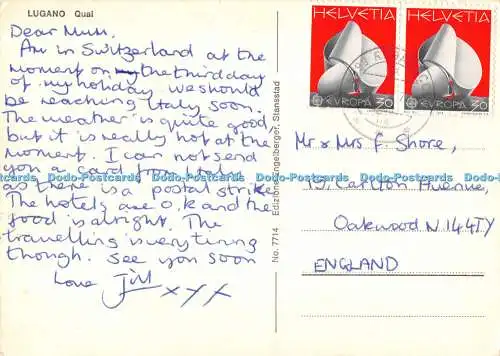 LUGANO Quai
Dear Mum,
Am in Switzerland at the
moment on my the third day
of my holiday we should
be reaching Italy soon.
The weather is quite good
but it is really hot at the
moment. I can not send
you a card from Italy
as there is a postal strike
The hotels are o.k and the
food is alright. The
travelling is very tiring
though. See you soon
Love Jill
xxx
No. 7714 Edizione Engelberger, Stansstad
HELVETIA
EUROPA 30
HELVETIA
EUROPA 30
Mr & Mrs F. Shore,
19, Carlton Avenue,
Oakwood N.14 4TY
ENGLAND
Dodo-Postcards Dodo-Postcards Dodo-Postcards